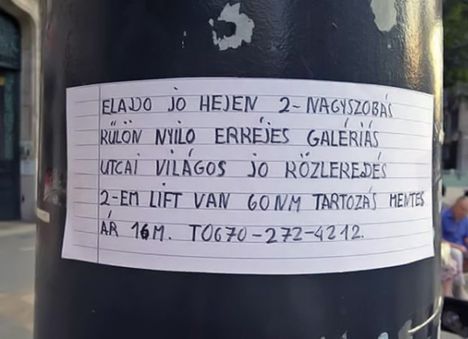 ELADO JO HEJEN 2-NAGYSZOBÁS
KÜLÖN NYILO ERKÉJES GALÉRIÁS
UTCAI VILÁGOS JO KÖZLEREDÉS
2-EM LIFT VAN 60NM TARTOZÁS MENTES
ÁR 16M. TO670-272-4212.